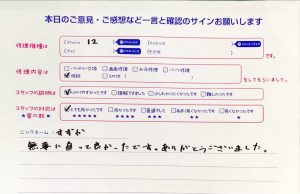 本日のご意見・ご感想など一言と確認のサインお願いします
修理機種は
iPhone 12
Android
iPad
その他
修理内容は
バッテリー交換 画面修理 水没修理 パーツ修理
をしてもらいました。
スタッフの説明は
わかりやすかったです 理解できました 少しわかりにくかったです 難しかったです
スタッフの対応は
★星の数★
とても良かったです 良かったです 普通でした
★★★★★ ★★★★ ★★★ ★★ ★
ニックネーム：すずか
無事に直って良かったです。ありがとうございました。